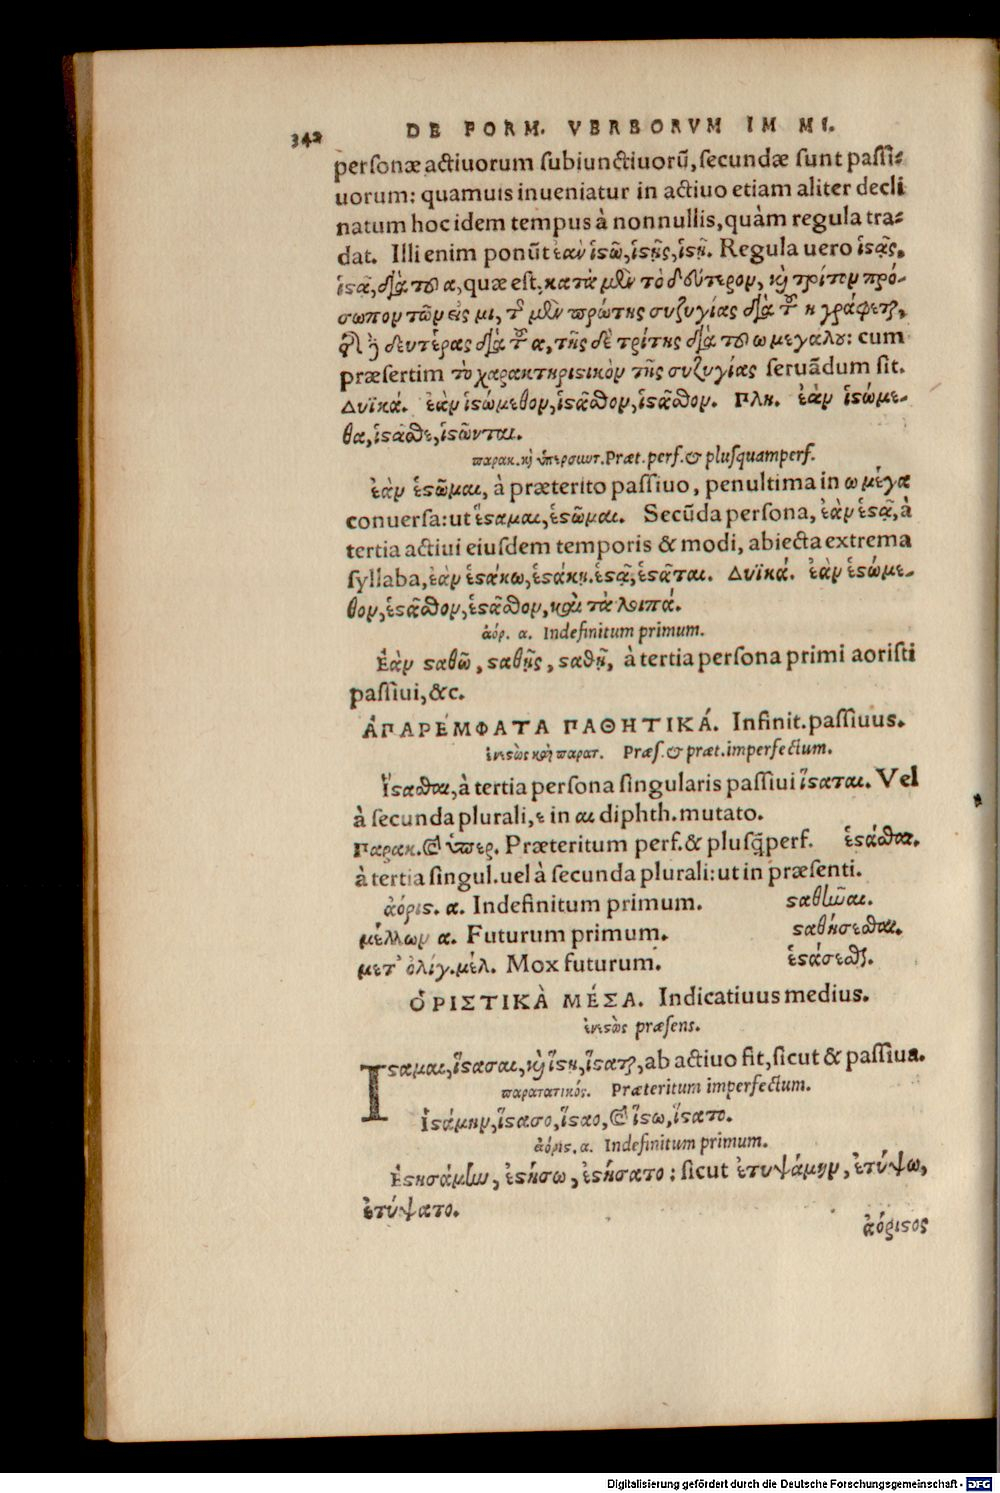 342 DE FORM. VERBORVM IM MI.
personæ actiuorum subiunctiuorũ, secundæ sunt passi-
uorum: quamuis inueniatur in actiuo etiam aliter decli
natum hoc idem tempus à nonnullis, quàm regula tra-
dat. Illi enim ponũt ἐὰν ἱϛῶ, ἱϛῇς, ἱϛῇ. Regula uero ἱϛᾷς,
ἱϛᾷ, διὰ τοῦ α, quæ est, κατὰ μὲν τὸ δεύτερον, καὶ τρίτον πρό-
σωπον τῶν εἰς μι, τ͂ μὲν πρώτης συζυγίας διὰ τοῦ η γράφεται,
ἐπὶ ἢ δευτέρας διὰ τοῦ α, τῆς δὲ τρίτης διὰ τοῦ ω μεγάλου: cum
præsertim τὸ χαρακτηριϛικὸν τῆς συζυγίας seruãdum sit.
Δυϊκά. ἐὰν ἱϛώμεθον, ἱϛᾶσθον, ἱϛᾶσθον. Πλη. ἐὰν ἱϛώμε-
θα, ἱϛᾶσθε, ἱϛῶνται.
παρακ. καὶ ὑπερσιωτ. Præt. perf. & plusquamperf.
ἐὰν ἑϛῶμαι, à præterito passiuo, penultima in ω μέγα
conuersa: ut ἕϛαμαι, ἑϛῶμαι. Secũda persona, ἐὰν ἑϛᾷ, à
tertia actiui eiusdem temporis & modi, abiecta extrema
syllaba, ἐὰν ἑϛάκω, ἑϛάκη. ἑϛᾷ, ἑϛᾶται. Δυϊκά. ἐὰν ἑϛώμε-
θον, ἑϛᾶσθον, ἑϛᾶσθον, καὶ τὰ λοιπά.
ἀόρ. α. Indefinitum primum.
Ἐὰν ϛαθῶ, ϛαθῇς, ϛαθῇ, à tertia persona primi aoristi
passiui, &c.
ἈΠΑΡΈΜΦΑΤΑ ΠΑΘΗΤΙΚΆ. Infinit. passiuus.
ἐνεϛὼς καὶ παρατ. Præs. & præt. imperfectum.
Ἵϛασθαι, à tertia persona singularis passiui ἵϛαται. Vel
à secunda plurali, ε in αι diphth. mutato.
Παρακ. καὶ ὑπερ. Præteritum perf. & plusq̃perf. ἑϛάσθαι.
à tertia singul. uel à secunda plurali: ut in præsenti.
ἀόριϛ. α. Indefinitum primum. ϛαθῆναι.
μέλλων α. Futurum primum. ϛαθήσεσθαι.
μετ' ὀλίγ. μέλ. Mox futurum. ἑϛάσεσθαι.
ὉΡΙΣΤΙΚᾺ ΜΈΣΑ. Indicatiuus medius.
ἐνεϛὼς præsens.
Ἵϛαμαι, ἵϛασαι, καὶ ἵϛῃ, ἵϛαται, ab actiuo fit, sicut & passiua.
παρατατικός. Præteritum imperfectum.
Ἱϛάμην, ἵϛασο, ἵϛαο, καὶ ἵϛω, ἵϛατο.
ἀόριϛ. α. Indefinitum primum.
Ἐϛησάμην, ἐϛήσω, ἐϛήσατο: sicut ἐτυψάμην, ἐτύψω,
ἐτύψατο.
ἀόριϛος
Digitalisierung gefördert durch die Deutsche Forschungsgemeinschaft - DFG